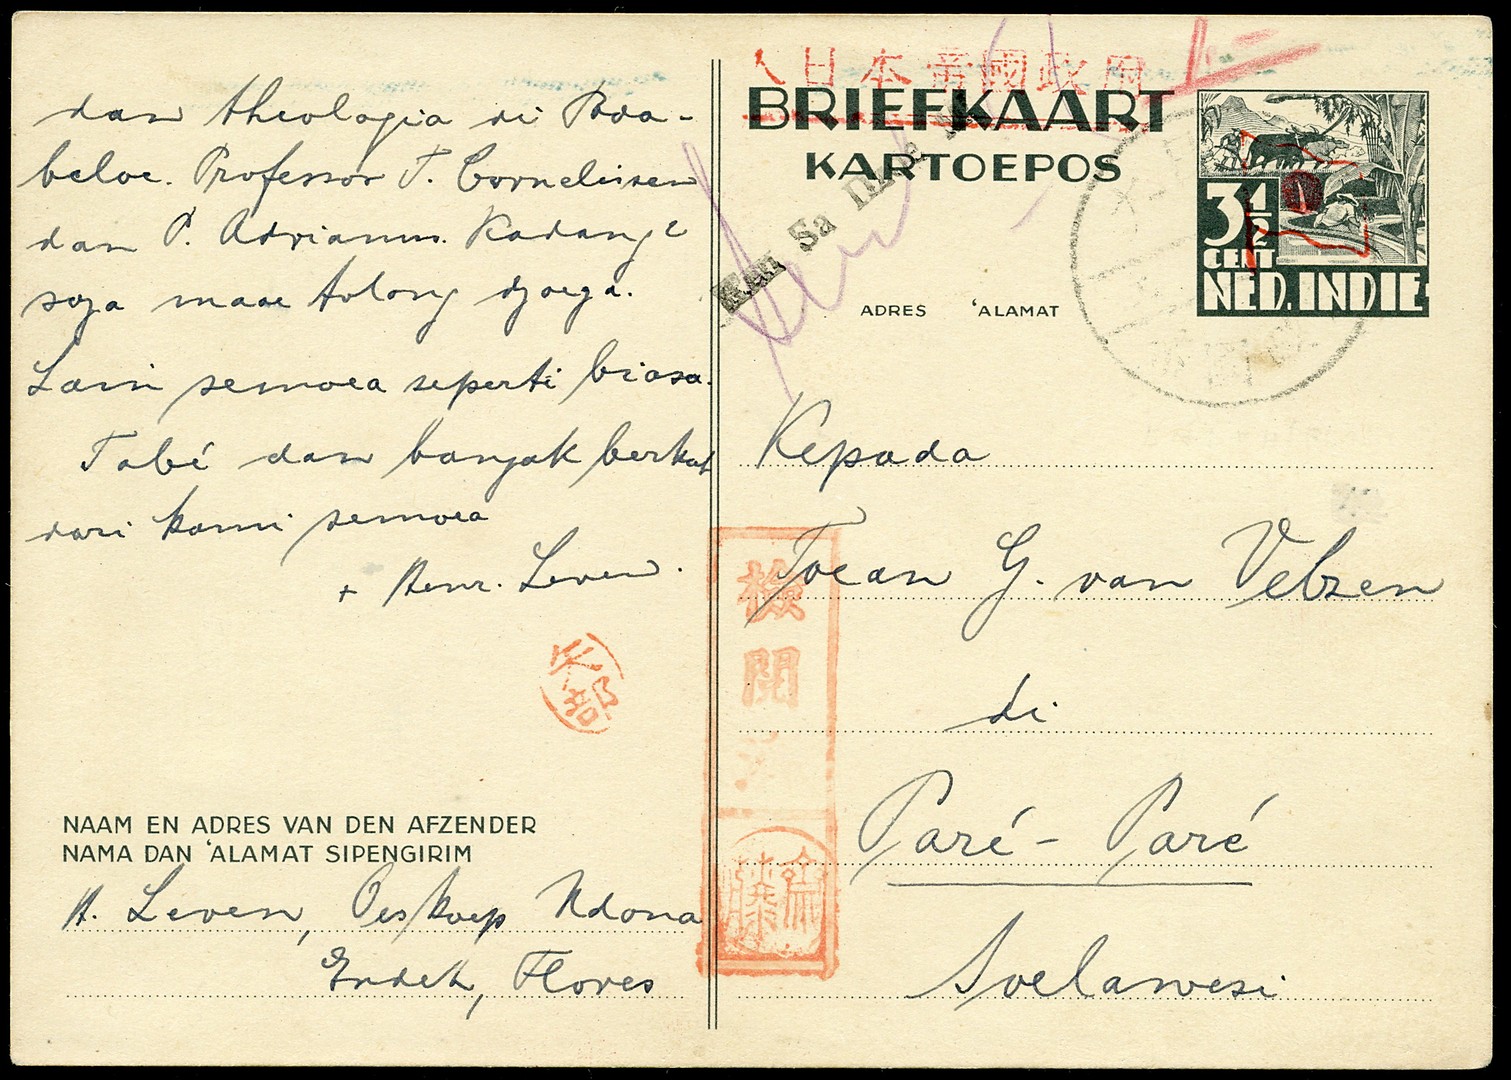 dan theologia di Toda-
beloe. Professor T. Cornelissen
dan P. Adrianus. Kadang2
saja maoe tolong djoega.
Lain semoea seperti biasa.
Tabé dan banjak berkat
dari kami semoea
+ Henr. Leven.
NAAM EN ADRES VAN DEN AFZENDER
NAMA DAN 'ALAMAT SIPENGIRIM
H. Leven, Oeskoep Ndona
Endeh, Flores
大日本帝國政府
BRIEFKAART
KARTOEPOS
Ken Sa
ADRES 'ALAMAT
3½
CENT
NED. INDIE
Kepada
Toean G. van Velzen
di
Paré-Paré
Soelawesi
検
閲
済